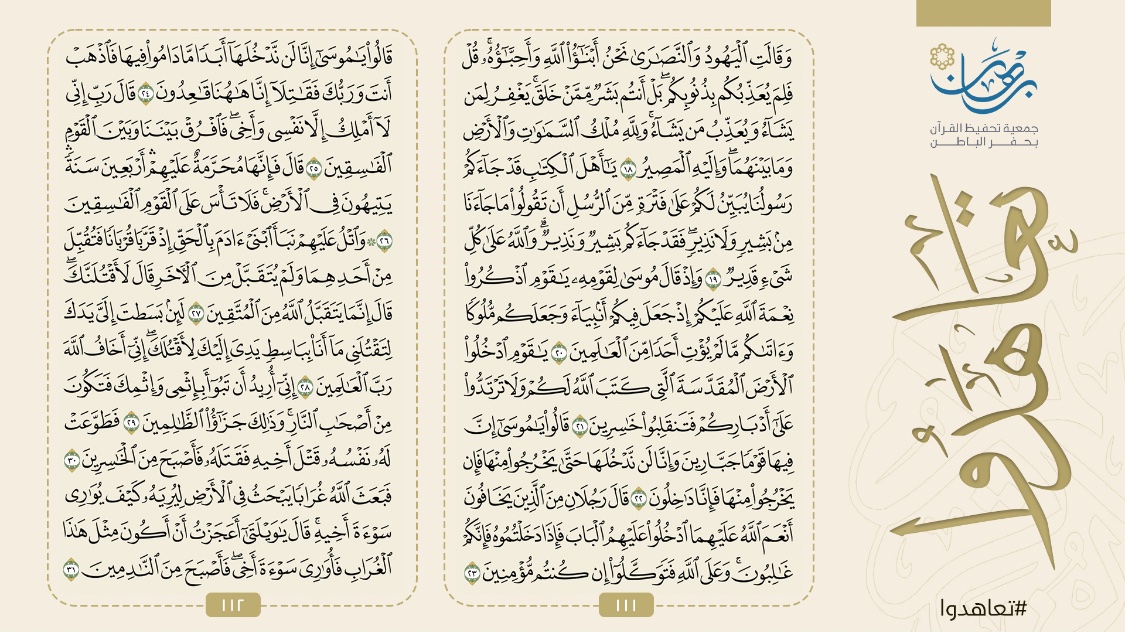 برهان
جمعية تحفيظ القرآن
بحفر الباطن
تعاهدوا
#تعاهدوا
وَقَالَتِ ٱلۡيَهُودُ وَٱلنَّصَٰرَىٰ نَحۡنُ أَبۡنَٰٓؤُاْ ٱللَّهِ وَأَحِبَّٰٓؤُهُۥۚ قُلۡ
فَلِمَ يُعَذِّبُكُم بِذُنُوبِكُمۖ بَلۡ أَنتُم بَشَرٞ مِّمَّنۡ خَلَقَۚ يَغۡفِرُ لِمَن
يَشَآءُ وَيُعَذِّبُ مَن يَشَآءُۚ وَلِلَّهِ مُلۡكُ ٱلسَّمَٰوَٰتِ وَٱلۡأَرۡضِ
وَمَا بَيۡنَهُمَاۖ وَإِلَيۡهِ ٱلۡمَصِيرُ ١٨ يَٰٓأَهۡلَ ٱلۡكِتَٰبِ قَدۡ جَآءَكُمۡ
رَسُولُنَا يُبَيِّنُ لَكُمۡ عَلَىٰ فَتۡرَةٖ مِّنَ ٱلرُّسُلِ أَن تَقُولُواْ مَا جَآءَنَا
مِنۢ بَشِيرٖ وَلَا نَذِيرٖۖ فَقَدۡ جَآءَكُم بَشِيرٞ وَنَذِيرٞۗ وَٱللَّهُ عَلَىٰ كُلِّ
شَيۡءٖ قَدِيرٞ ١٩ وَإِذۡ قَالَ مُوسَىٰ لِقَوۡمِهِۦ يَٰقَوۡمِ ٱذۡكُرُواْ
نِعۡمَةَ ٱللَّهِ عَلَيۡكُمۡ إِذۡ جَعَلَ فِيكُمۡ أَنۢبِيَآءَ وَجَعَلَكُم مُّلُوكٗا
وَءَاتَىٰكُم مَّا لَمۡ يُؤۡتِ أَحَدٗا مِّنَ ٱلۡعَٰلَمِينَ ٢٠ يَٰقَوۡمِ ٱدۡخُلُواْ
ٱلۡأَرۡضَ ٱلۡمُقَدَّسَةَ ٱلَّتِي كَتَبَ ٱللَّهُ لَكُمۡ وَلَا تَرۡتَدُّواْ
عَلَىٰٓ أَدۡبَارِكُمۡ فَتَنقَلِبُواْ خَٰسِرِينَ ٢١ قَالُواْ يَٰمُوسَىٰٓ إِنَّ
فِيهَا قَوۡمٗا جَبَّارِينَ وَإِنَّا لَن نَّدۡخُلَهَا حَتَّىٰ يَخۡرُجُواْ مِنۡهَا فَإِن
يَخۡرُجُواْ مِنۡهَا فَإِنَّا دَٰخِلُونَ ٢٢ قَالَ رَجُلَانِ مِنَ ٱلَّذِينَ يَخَافُونَ
أَنۡعَمَ ٱللَّهُ عَلَيۡهِمَا ٱدۡخُلُواْ عَلَيۡهِمُ ٱلۡبَابَ فَإِذَا دَخَلۡتُمُوهُ فَإِنَّكُمۡ
غَٰلِبُونَۚ وَعَلَى ٱللَّهِ فَتَوَكَّلُوٓاْ إِن كُنتُم مُّؤۡمِنِينَ ٢٣
١١١
قَالُواْ يَٰمُوسَىٰٓ إِنَّا لَن نَّدۡخُلَهَآ أَبَدٗا مَّا دَامُواْ فِيهَا فَٱذۡهَبۡ
أَنتَ وَرَبُّكَ فَقَٰتِلَآ إِنَّا هَٰهُنَا قَٰعِدُونَ ٢٤ قَالَ رَبِّ إِنِّي
لَآ أَمۡلِكُ إِلَّا نَفۡسِي وَأَخِيۖ فَٱفۡرُقۡ بَيۡنَنَا وَبَيۡنَ ٱلۡقَوۡمِ
ٱلۡفَٰسِقِينَ ٢٥ قَالَ فَإِنَّهَا مُحَرَّمَةٌ عَلَيۡهِمۡۛ أَرۡبَعِينَ سَنَةٗۛ
يَتِيهُونَ فِي ٱلۡأَرۡضِۚ فَلَا تَأۡسَ عَلَى ٱلۡقَوۡمِ ٱلۡفَٰسِقِينَ
٢٦ ۞ وَٱتۡلُ عَلَيۡهِمۡ نَبَأَ ٱبۡنَيۡ ءَادَمَ بِٱلۡحَقِّ إِذۡ قَرَّبَا قُرۡبَانٗا فَتُقُبِّلَ
مِنۡ أَحَدِهِمَا وَلَمۡ يُتَقَبَّلۡ مِنَ ٱلۡأٓخَرِ قَالَ لَأَقۡتُلَنَّكَۖ
قَالَ إِنَّمَا يَتَقَبَّلُ ٱللَّهُ مِنَ ٱلۡمُتَّقِينَ ٢٧ لَئِنۢ بَسَطتَ إِلَيَّ يَدَكَ
لِتَقۡتُلَنِي مَآ أَنَا۠ بِبَاسِطٖ يَدِيَ إِلَيۡكَ لِأَقۡتُلَكَۖ إِنِّيٓ أَخَافُ ٱللَّهَ
رَبَّ ٱلۡعَٰلَمِينَ ٢٨ إِنِّيٓ أُرِيدُ أَن تَبُوٓأَ بِإِثۡمِي وَإِثۡمِكَ فَتَكُونَ
مِنۡ أَصۡحَٰبِ ٱلنَّارِۚ وَذَٰلِكَ جَزَٰٓؤُاْ ٱلظَّٰلِمِينَ ٢٩ فَطَوَّعَتۡ
لَهُۥ نَفۡسُهُۥ قَتۡلَ أَخِيهِ فَقَتَلَهُۥ فَأَصۡبَحَ مِنَ ٱلۡخَٰسِرِينَ ٣٠
فَبَعَثَ ٱللَّهُ غُرَابٗا يَبۡحَثُ فِي ٱلۡأَرۡضِ لِيُرِيَهُۥ كَيۡفَ يُوَٰرِي
سَوۡءَةَ أَخِيهِۚ قَالَ يَٰوَيۡلَتَىٰٓ أَعَجَزۡتُ أَنۡ أَكُونَ مِثۡلَ هَٰذَا
ٱلۡغُرَابِ فَأُوَٰرِيَ سَوۡءَةَ أَخِيۖ فَأَصۡبَحَ مِنَ ٱلنَّٰدِمِينَ ٣١
١١٢